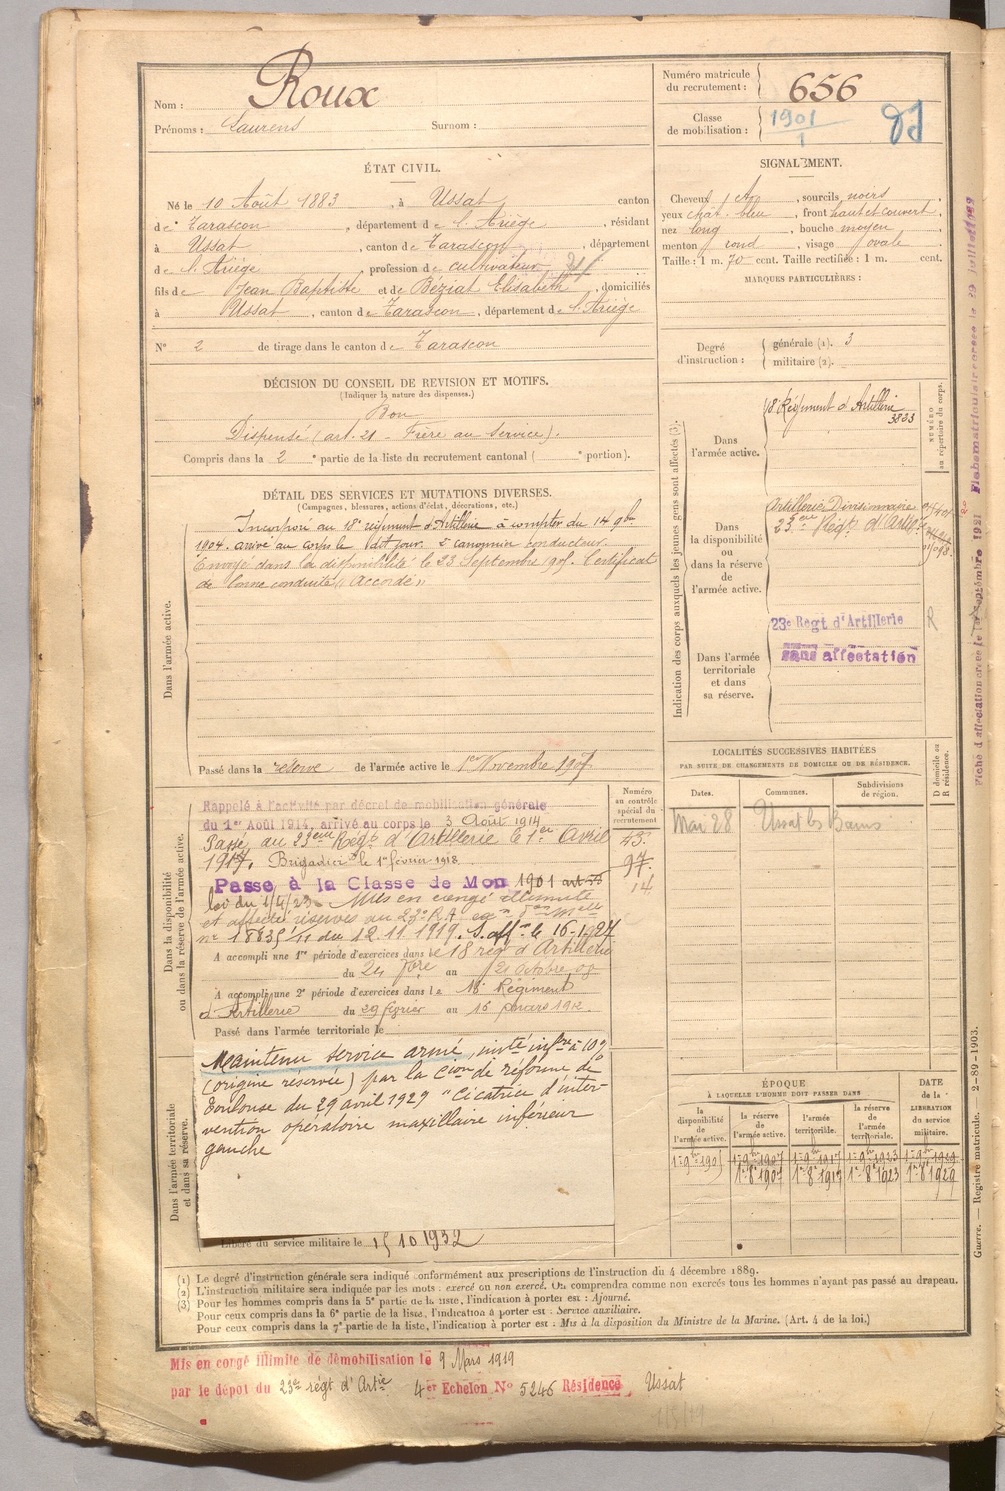 Nom : Roux
Prénoms : Laurens Surnom :
Numéro matricule du recrutement : 656
Classe de mobilisation : 1901
1
ÉTAT CIVIL.
Né le 10 Août 1883, à Ussat canton
de Tarascon, département de l'Ariège, résidant
à Ussat, canton de Tarascon, département
de l'Ariège, profession de cultivateur
fils de Jean Baptiste et de Béziat Elisabeth, domiciliés
à Ussat, canton de Tarascon, département de l'Ariège
N° 2 de tirage dans le canton de Tarascon
SIGNALEMENT.
Cheveux , sourcils noirs
yeux chât. bleu, front haut et couvert,
nez long, bouche moyen
menton rond, visage ovale
Taille : 1 m. 70 cent. Taille rectifiée : 1 m. cent.
MARQUES PARTICULIÈRES :
Degré d'instruction : générale (1). 3
militaire (2).
DÉCISION DU CONSEIL DE REVISION ET MOTIFS.
(Indiquer la nature des dispenses.)
Bon
Dispensé (art. 21 - Frère au service).
Compris dans la 2e partie de la liste du recrutement cantonal ( e portion).
DÉTAIL DES SERVICES ET MUTATIONS DIVERSES.
(Campagnes, blessures, actions d'éclat, décorations, etc.)
Dans l'armée active.
Incorporé au 18e régiment d'Artillerie à compter du 14 9bre
1904. arrivé au corps le dit jour. 2e canonnier conducteur.
Envoyé dans la disponibilité le 23 Septembre 1905. Certificat
de bonne conduite "Accordé"
Passé dans la réserve de l'armée active le 1er Novembre 1907
Indication des corps auxquels les jeunes gens sont affectés (3).
NUMÉRO au répertoire du corps.
Dans l'armée active.
18e Régiment d'Artillerie
3823
Dans la disponibilité ou dans la réserve de l'armée active.
Artillerie Divisionnaire
23eme Régt d'Artie
Dans l'armée territoriale et dans sa réserve.
23e Regt d'Artillerie
sans affectation
R
LOCALITÉS SUCCESSIVES HABITÉES
PAR SUITE DE CHANGEMENTS DE DOMICILE OU DE RÉSIDENCE.
Dates. Communes. Subdivisions de région. D domicile ou R résidence.
Mai 28 Ussat les Bains
Dans la disponibilité ou dans la réserve de l'armée active.
Numéro au contrôle spécial du recrutement
Rappelé à l'activité par décret de mobilisation générale
du 1er Août 1914, arrivé au corps le 3 Août 1914
Passé au 23eme Régt d'Artillerie le 1er Avril
1917. Brigadier le 1er février 1918.
Passé à la Classe de Mon 1901 art 55
loi du 1/4/23. Mis en congé illimité
et affecté réserves au 23e R.A.
n° 18835/11 du 12.11.1919. S. aff on le 16-1.927
A accompli une 1re période d'exercices dans le 18 rég d'Artillerie
du 24 7bre au 21 octobre
A accompli une 2e période d'exercices dans le 18e Régiment
d'Artillerie du 29 février au 16 mars 1912
Passé dans l'armée territoriale le
Dans l'armée territoriale et dans sa réserve.
Maintenu service armé, invté infre à 10%
(origine réservée) par la Cion de réforme de
Toulouse du 29 avril 1929 "Cicatrice d'inter-
vention opératoire maxillaire inférieur
gauche
Libéré du service militaire le 15 10 1932
ÉPOQUE À LAQUELLE L'HOMME DOIT PASSER DANS
la disponibilité de l'armée active. la réserve de l'armée active. l'armée territoriale. la réserve de l'armée territoriale. DATE de la LIBÉRATION du service militaire.
1er 9bre 1905 1er 9bre 1907 1er 9bre 1917 1er 9bre 1923 1er 9bre 1929
1er 8 1907 1er 8 1917 1er 8 1923 1er 8 1929
(1) Le degré d'instruction générale sera indiqué conformément aux prescriptions de l'instruction du 4 décembre 1889.
(2) L'instruction militaire sera indiquée par les mots : exercé ou non exercé. On comprendra comme non exercés tous les hommes n'ayant pas passé au drapeau.
(3) Pour les hommes compris dans la 5e partie de la liste, l'indication à porter est : Ajourné.
Pour ceux compris dans la 6e partie de la liste, l'indication à porter est : Service auxiliaire.
Pour ceux compris dans la 7e partie de la liste, l'indication à porter est : Mis à la disposition du Ministre de la Marine. (Art. 4 de la loi.)
Mis en congé illimité de démobilisation le 9 Mars 1919
par le dépôt du 23e régt d'Artie 4er Echelon N° 5246 Résidence Ussat
Guerre. — Registre matricule. — 2-89-1903.